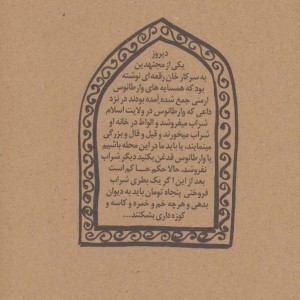 دیروز
یکی از مجتهدین
به سرکار خان رقعه‌ای نوشته
بود که همسایه های وارطانوس
ارمنی جمع شده آمده بودند در نزد
داعی که وارطانوس در ولایت اسلام
شراب میفروشد و الواط در خانه او
شراب میخورند و قیل و قال و بزرگی
مینمایند، یا باید ما در این محله باشیم
یا وارطانوس قدغن بکنید دیگر شراب
نفروشد، حالا حکم حاکم است
بعد از این اگر یک بطری شراب
فروختی پنجاه تومان باید به دیوان
بدهی و هرچه خم و خمره و کاسه و
کوزه داری بشکنند...